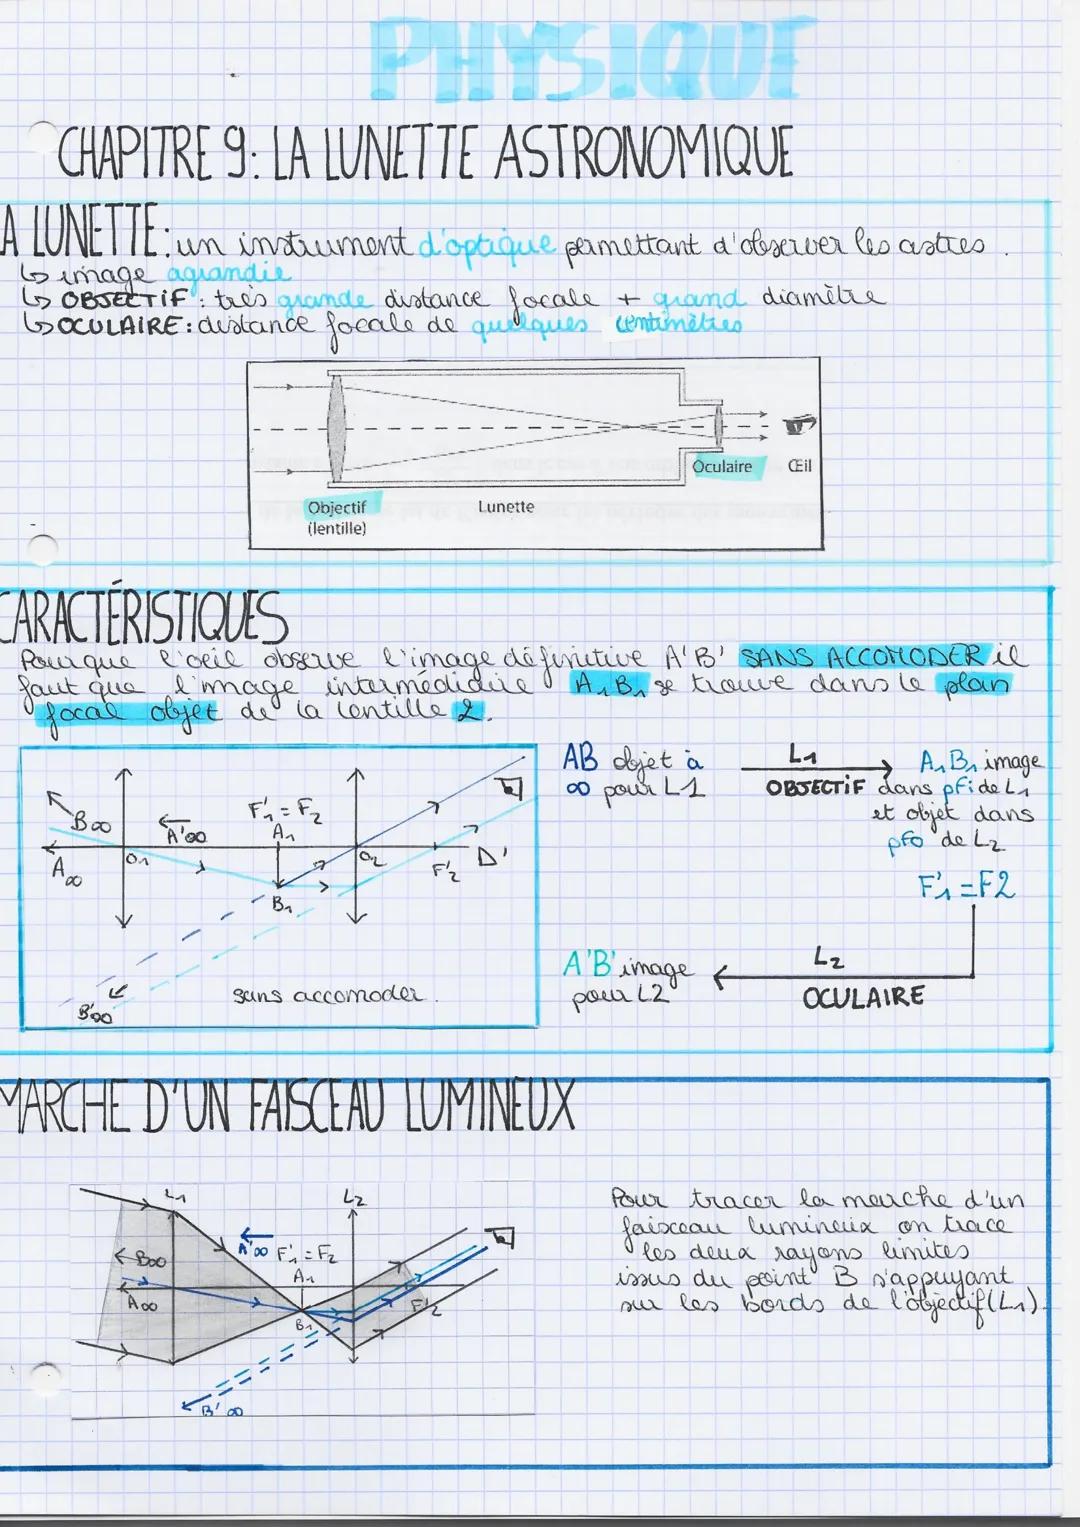 PHYSIQUE
CHAPITRE 9: LA LUNETTE ASTRONOMIQUE
A LUNETTE: un instrument d'optique permettant d'observer les astres.
↳ image agrandie
↳ OBJECTIF: très grande distance focale + grand diamètre
↳ OCULAIRE: distance focale de quelques centimètres
Oculaire
Œil
Objectif
(lentille)
Lunette
CARACTÉRISTIQUES
Pour que l'oeil observe l'image définitive A'B' SANS ACCOMODER il
faut que l'image intermédiaire A₁B₁ se trouve dans le plan
focal objet de la lentille 2.
B∞
A'∞
F'₁ = F₂
A₁
A∞
O₁
O₂
F'₂
Δ'
B₁
B'∞
sans accomoder.
AB objet à
∞ pour L1
L₁
OBJECTIF
A₁B₁ image
dans pfi de L₁
et objet dans
pfo de L₂
F'₁ = F2
A'B' image
pour L2
L₂
OCULAIRE
MARCHE D'UN FAISCEAU LUMINEUX
L₁
L₂
B∞
A'∞
F'₁ = F₂
A₁
A∞
B₁
F'₂
B'∞
Pour tracer la marche d'un
faisceau lumineux on trace
les deux rayons limites
issus du point B s'appuyant
sur les bords de l'objectif (L₁).